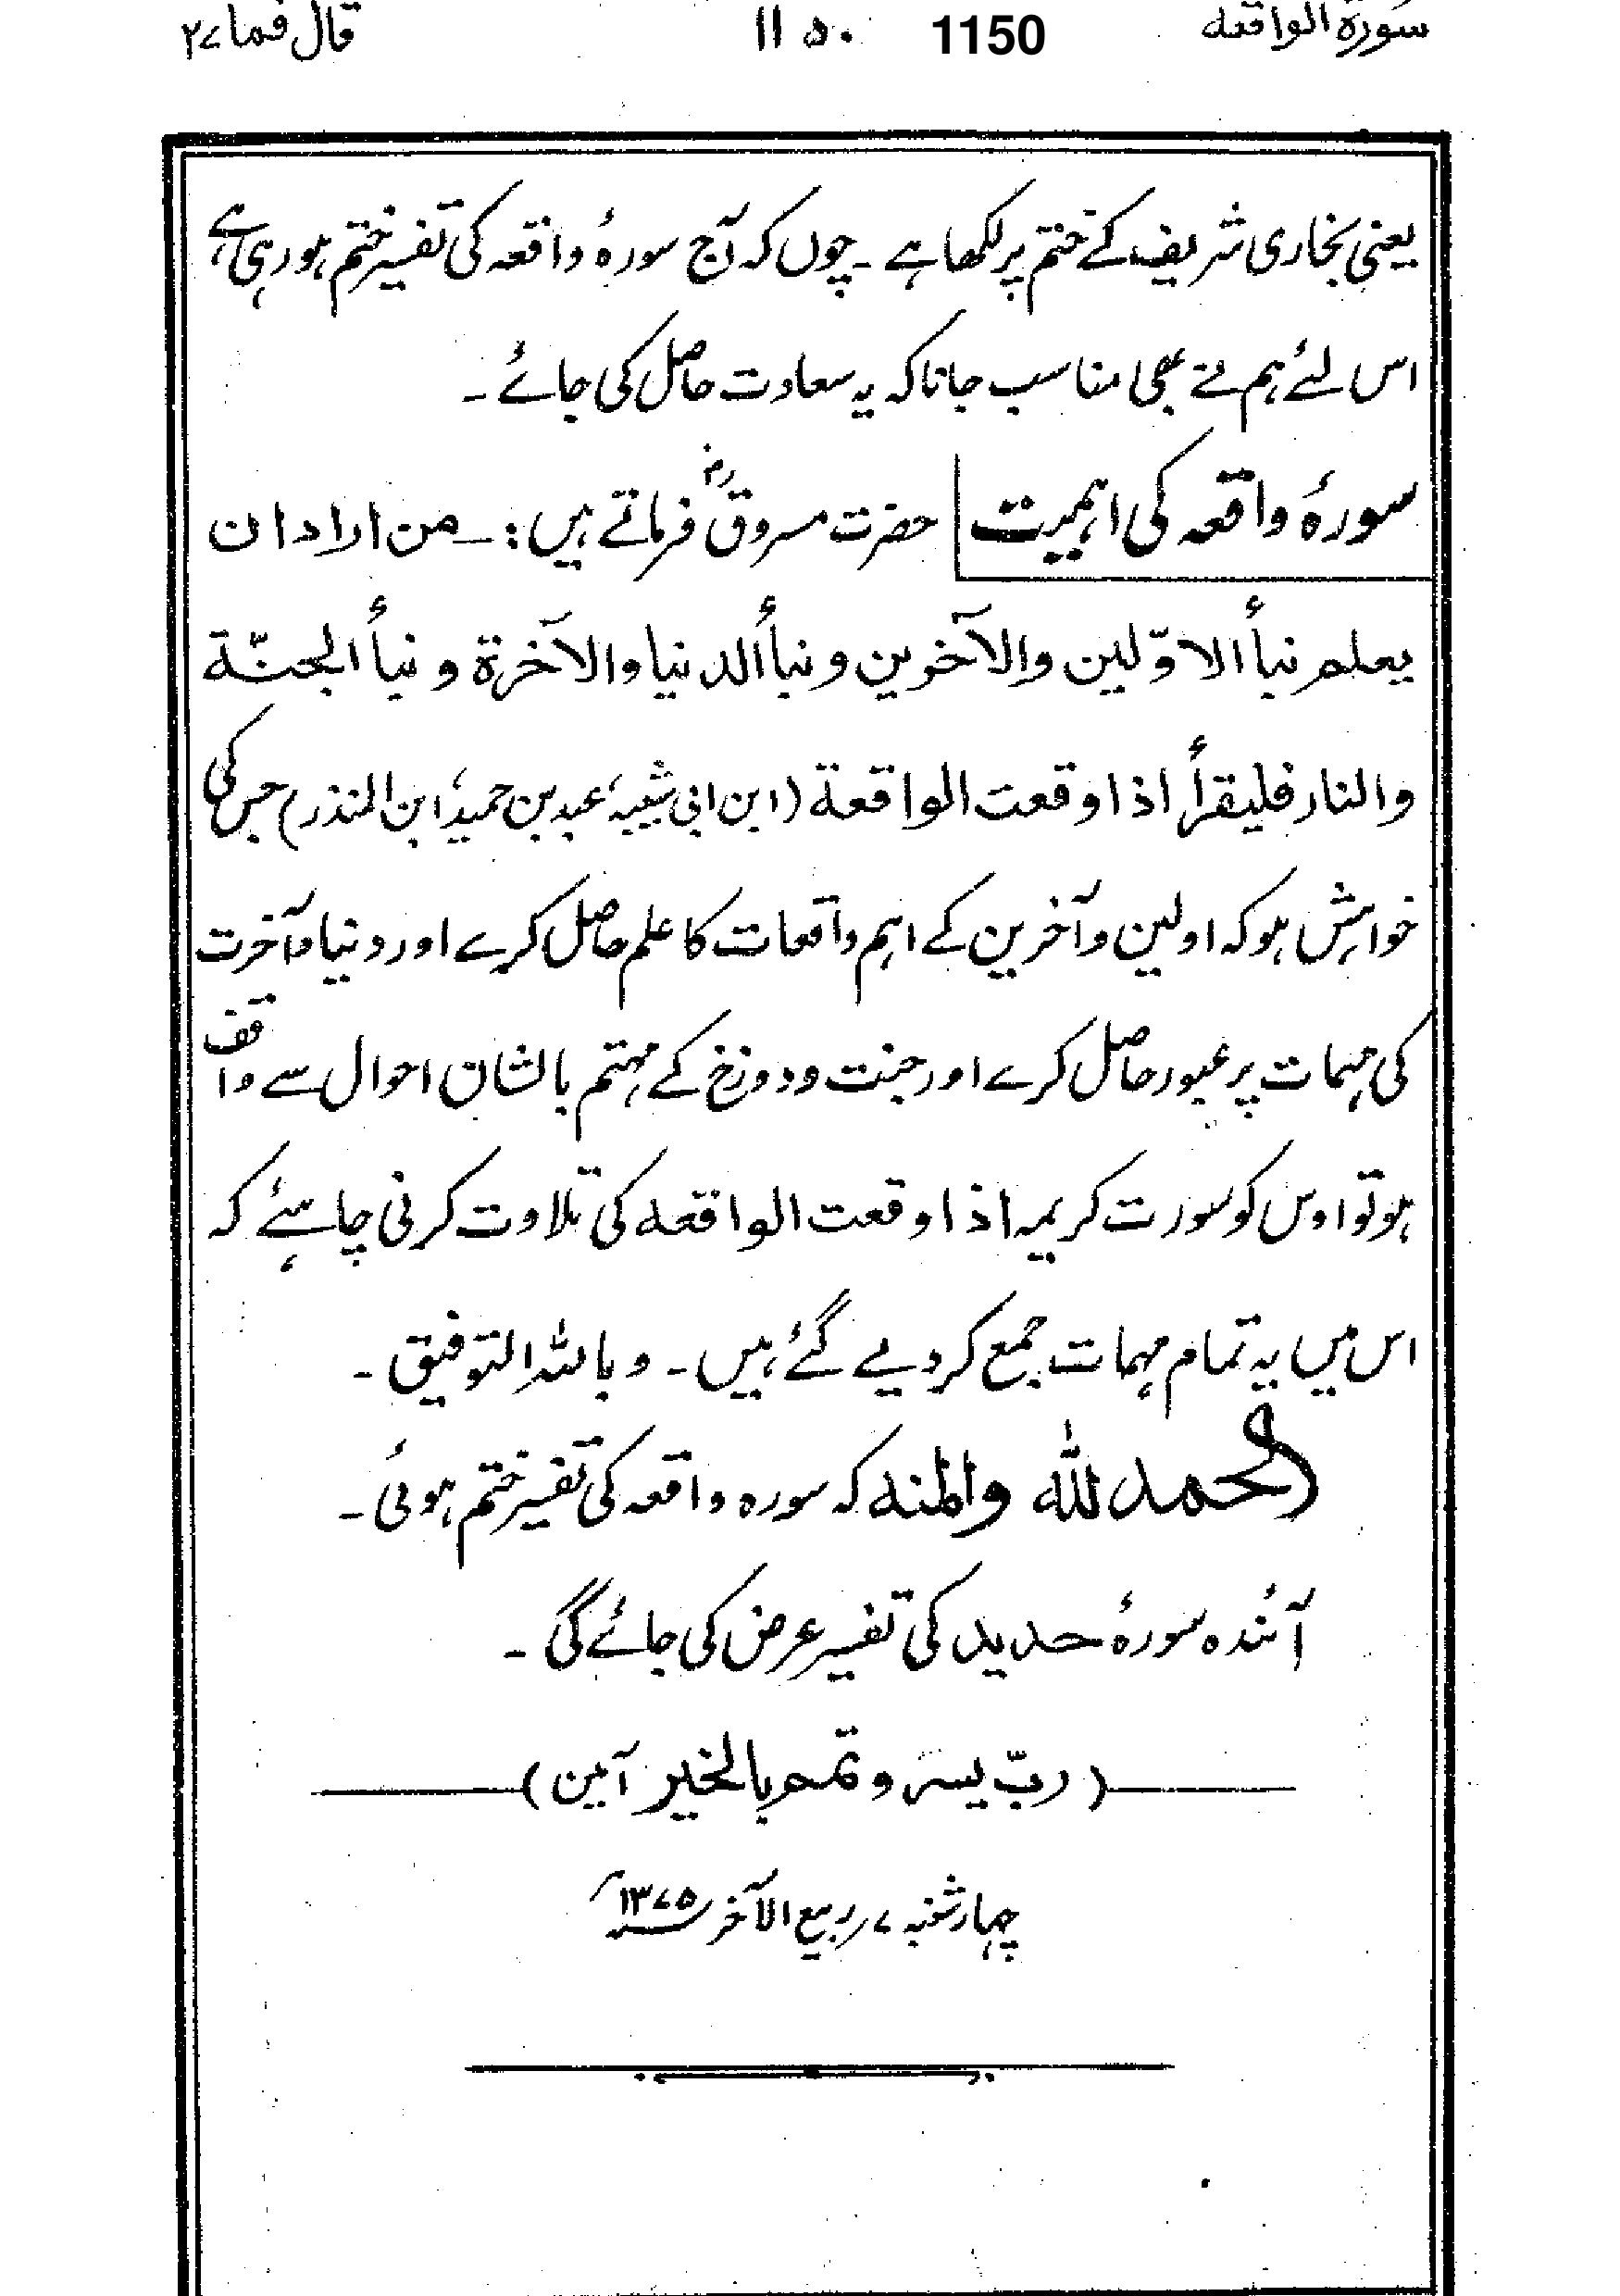 سورۃ الواقعہ 1150 ۱۱۵۰ قال فما ۲۷
یعنی بخاری شریف کے ختم پر لکھا ہے ۔ چوں کہ آج سورۂ واقعہ کی تفسیر ختم ہو رہی ہے،
اس لئے ہم نے بھی مناسب جانا کہ یہ سعادت حاصل کی جائے ۔
سورۂ واقعہ کی اہمیت حضرت مسروقؓ فرماتے ہیں :۔ من اراد ان
یعلم نبأ الاوّلین والآخرین ونبأ الدنیا والآخرۃ ونبأ الجنّۃ
والنار فلیقرأ اذا وقعت الواقعۃ (ابن ابی شیبہ، عبد بن حمید، ابن المنذر) جس کی
خواہش ہو کہ اولین وآخرین کے اہم واقعات کا علم حاصل کرے اور دنیا وآخرت
کی مہمات پر عبور حاصل کرے اور جنت ودوزخ کے مہتم بالشان احوال سے واقف
ہو تو اوس کو سورت کریمہ اذا وقعت الواقعہ کی تلاوت کرنی چاہئے کہ
اس میں یہ تمام مہمات جمع کر دیے گئے ہیں ۔ وباللہ التوفیق ۔
الحمد للّٰہ والمنہ کہ سورہ واقعہ کی تفسیر ختم ہوئی ۔
آئندہ سورۂ حدید کی تفسیر عرض کی جائے گی ۔
( ربّ یسر و تمم بالخیر آمین )
چہار شنبہ ۷ ربیع الآخر ۱۳۷۵